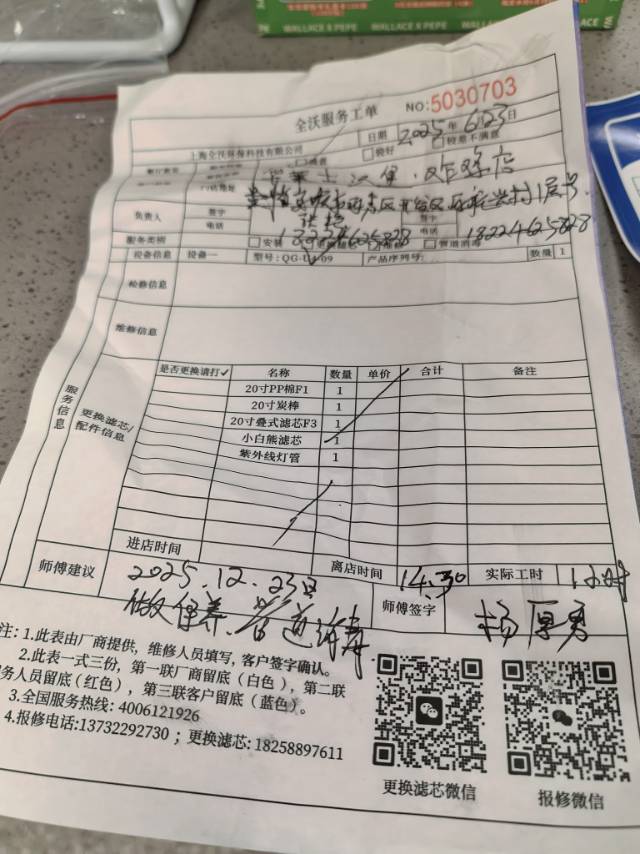 WALLACE X PEPE
WALLACE X PEPE
全沃服务工单 NO:5030703
上海全沃环保科技有限公司 日期 2025年6月23日
较好 较差不满意
门店地址
负责人 签字 签字
电话 电话 18224625828
服务类别 安装 管道消毒
设备信息 设备一 型号: QG-U4-09 产品序列号: 数量 1
检修信息
维修信息
服务信息
更换滤芯/配件信息
是否更换请打✓ 名称 数量 单价 合计 备注
20寸PP棉F1 1
20寸炭棒 1
20寸叠式滤芯F3 1
小白熊滤芯 1
紫外线灯管 1
进店时间 离店时间 14:30 实际工时 1小时
师傅建议 2025.12.23日 做保养.管道消毒 师傅签字 杨厚勇
注: 1.此表由厂商提供，维修人员填写，客户签字确认。
2.此表一式三份，第一联厂商留底(白色)，第二联
务人员留底(红色)，第三联客户留底(蓝色)。
3.全国服务热线: 4006121926
4.报修电话:13732292730 ; 更换滤芯: 18258897611
更换滤芯微信 报修微信